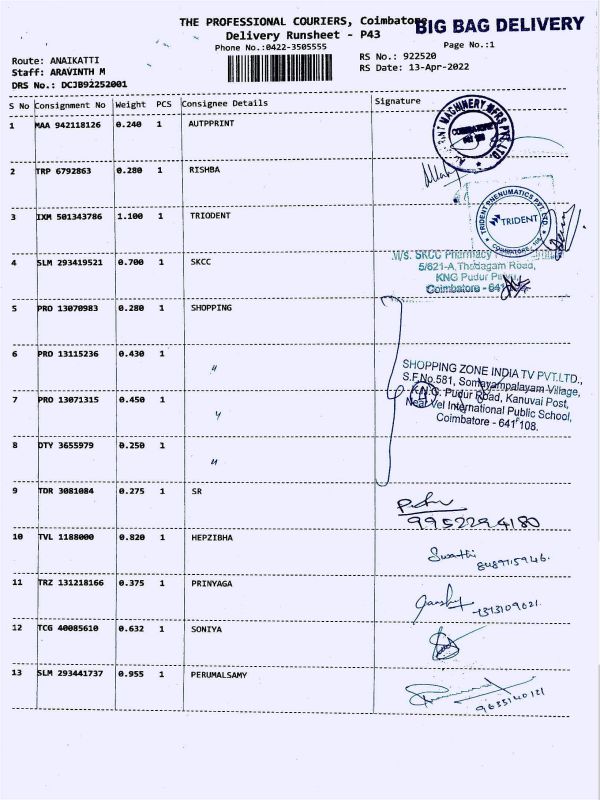 THE PROFESSIONAL COURIERS, Coimbatore
BIG BAG DELIVERY
Delivery Runsheet - P43
Phone No.:0422-3505555
Page No.:1
Route: ANAIKATTI
Staff: ARAVINTH M
DRS No.: DCJB92252001
RS No.: 922520
RS Date: 13-Apr-2022
S No Consignment No Weight PCS Consignee Details Signature
1 MAA 942118126 0.240 1 AUTPPRINT
MACHINERY MFRS PVT. LTD.
COIMBATORE
2 TRP 6792863 0.280 1 RISHBA
3 IXM 501343786 1.100 1 TRIODENT
TRIDENT PNEUMATICS PVT. LTD.
TRIDENT
COIMBATORE
4 SLM 293419521 0.700 1 SKCC
M/s. SKCC Pharmacy
5/621-A, Thadagam Road,
KNG Pudur
Coimbatore - 641
5 PRO 13070983 0.280 1 SHOPPING
6 PRO 13115236 0.430 1 "
SHOPPING ZONE INDIA TV PVT.LTD.,
S.F.No.581, Somayampalayam Village,
K.N.G. Pudur Road, Kanuvai Post,
Near Vel International Public School,
Coimbatore - 641 108.
7 PRO 13071315 0.450 1 "
8 DTY 3655979 0.250 1 "
9 TDR 3081084 0.275 1 SR
9952294180
10 TVL 1188000 0.820 1 HEPZIBHA
Swathi
11 TRZ 131218166 0.375 1 PRINYAGA
12 TCG 40085610 0.632 1 SONIYA
13 SLM 293441737 0.955 1 PERUMALSAMY